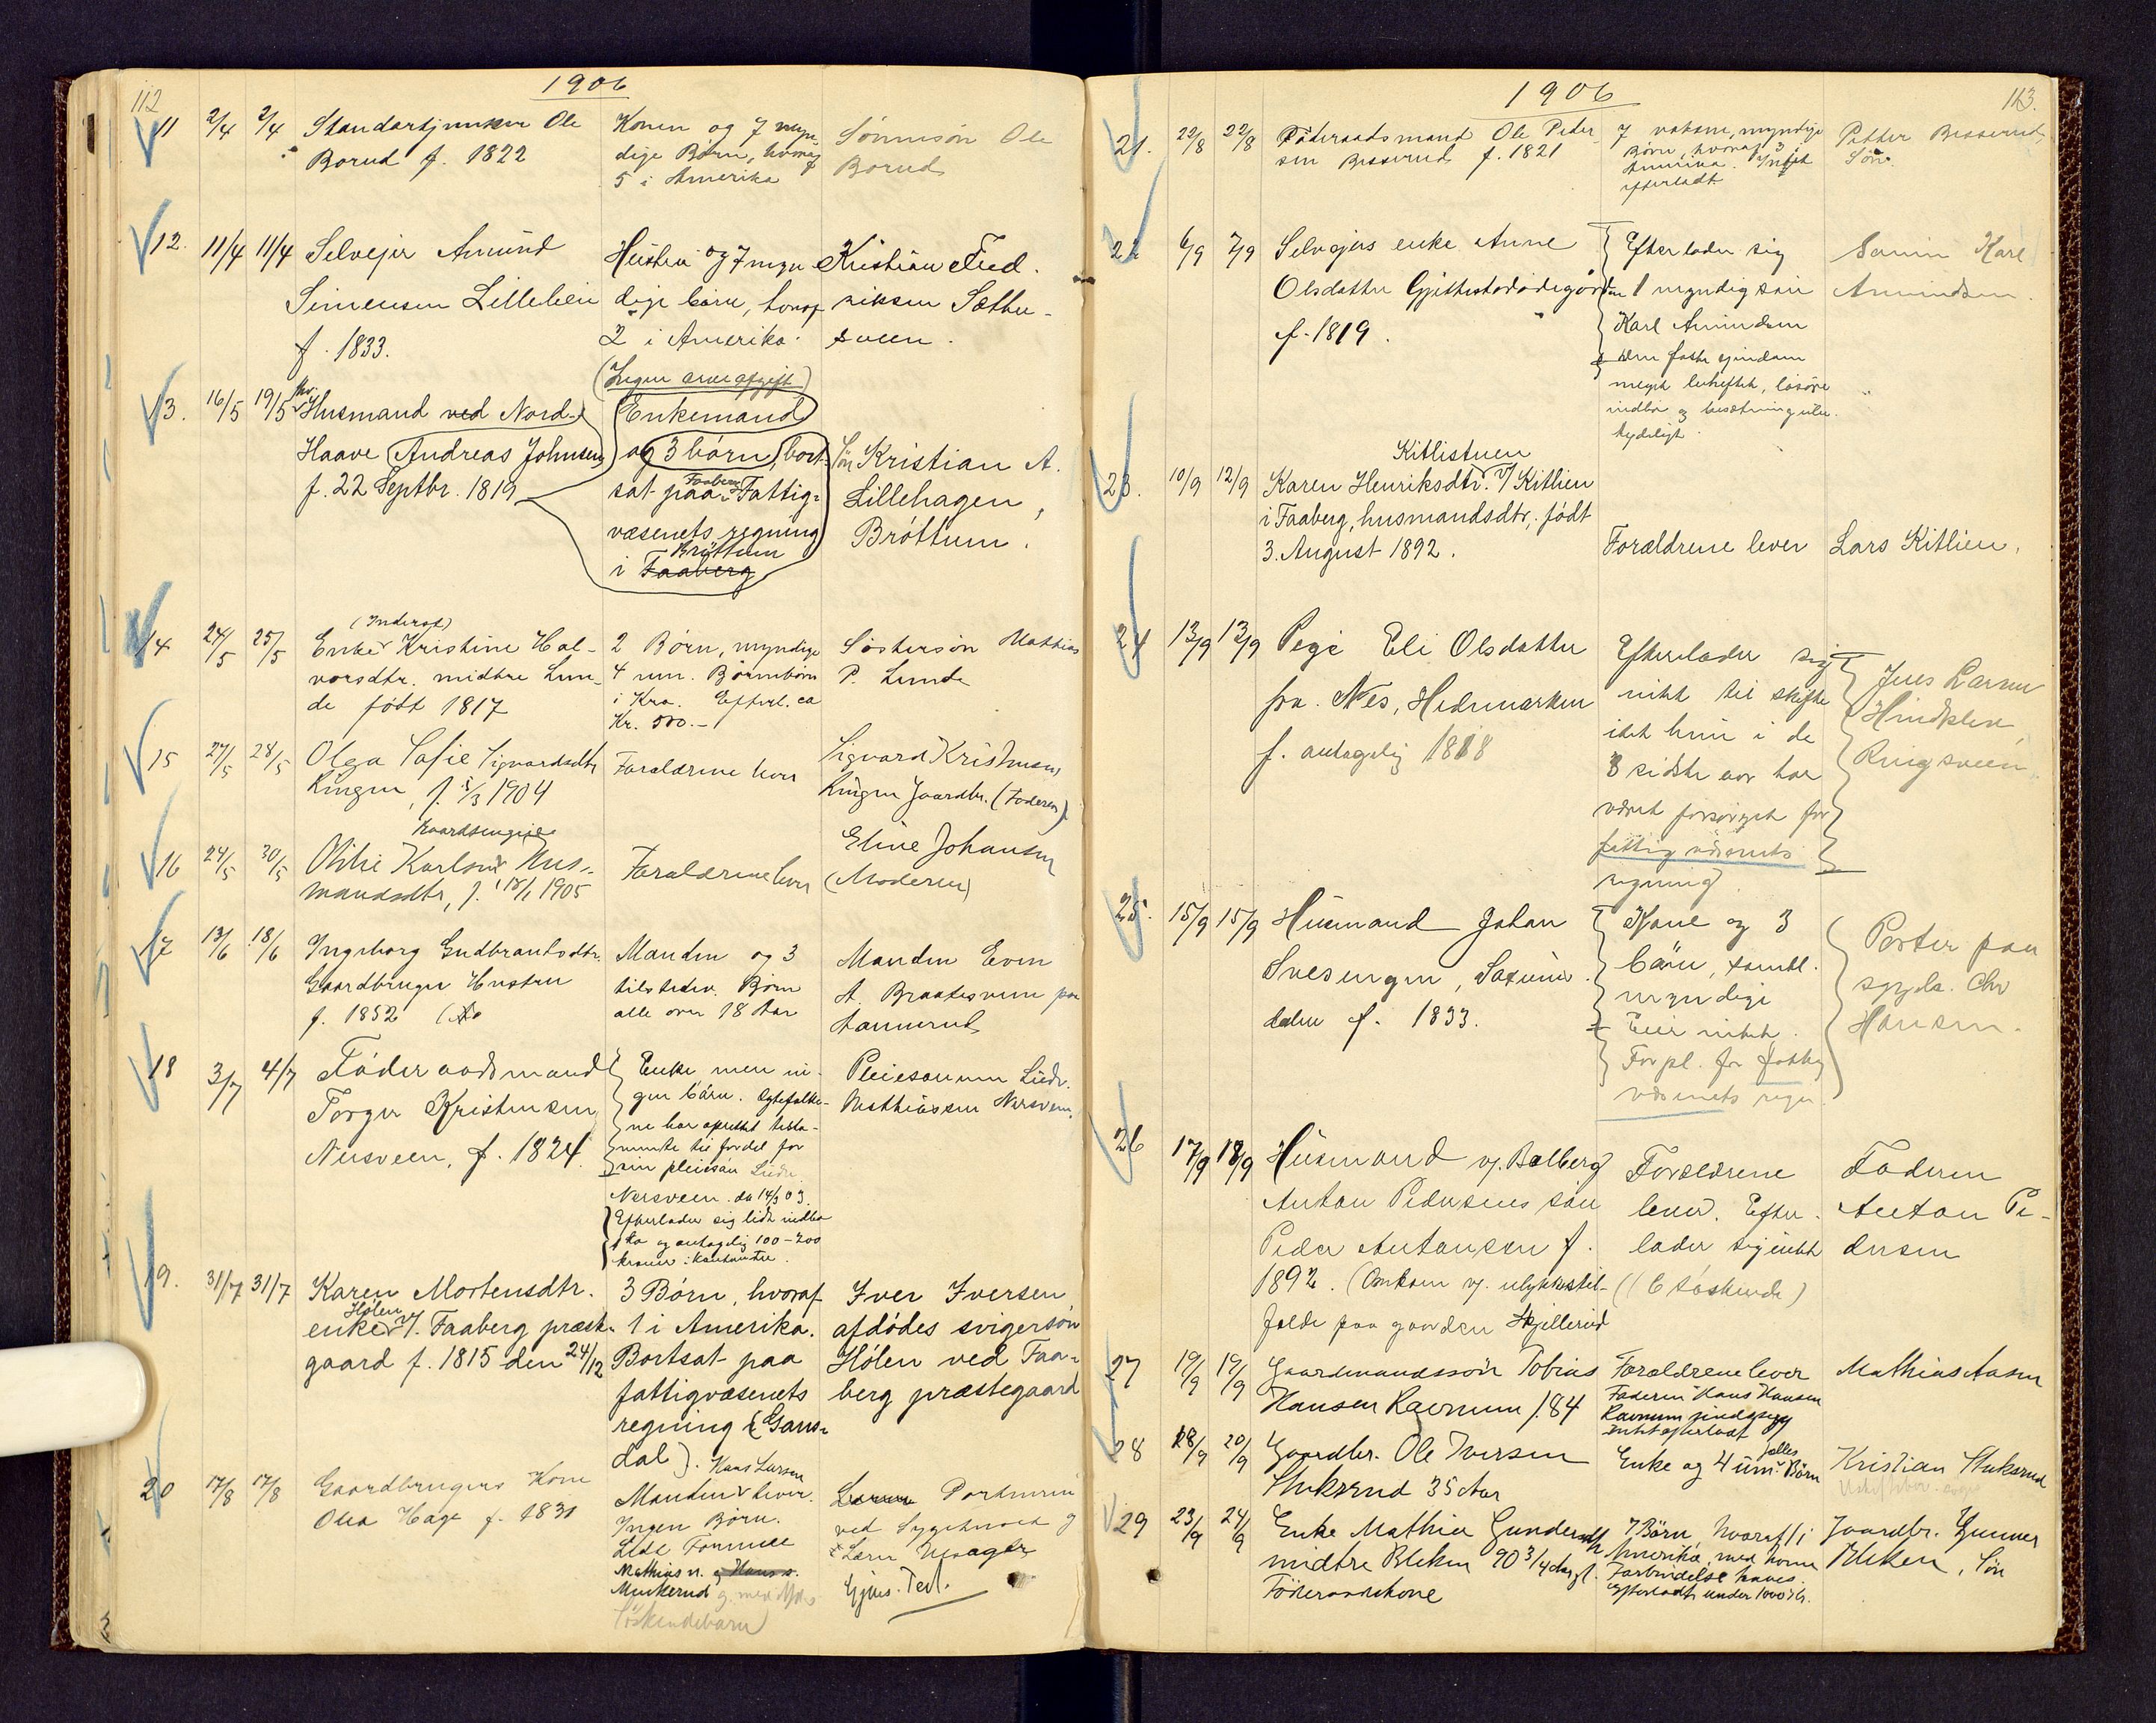 112
1906
11 2/4 2/4 Standartjunker Ole
Borud f. 1822
Konen og 7 myn-
dige Børn, hvoraf
5 i Amerika
Sønnesøn Ole
Borud
12. 11/4 11/4 Selvejer Amund
Simensen Lillehein
f. 1833.
Hustru og 7 myn-
dige børn, hvoraf
2 i Amerika.
Kristian Fred.
riksen Sæther-
sveen.
(Ingen arveafgift)
13. 16/5 19/5 Husmand ved Nord-
Haave Andreas Johnsen
f. 22 Septbr. 1819
Enkemand
og 3 børn, bort-
sat paa Faaberg Fattig-
væsenets regning
i Brøttum
Faaberg
Søn Kristian A.
Lillehagen,
Brøttum.
14 24/5 25/5 (Inderst)
Enke Kristine Hal-
vorsdtr. midtre Lun-
de født 1817
2 Børn, myndige
4 um. Børnebørn
i Kra. Efterl. ca
Kr. 500.-
Søstersøn Mathias
P. Lunde
15 27/5 28/5 Olga Sofie Sigvardsdtr
Ringen, f. 5/3 1904
Forældrene lever
Sigvard Kristensen
Ringen Gaardbr. (Faderen)
16 24/5 30/5 Othilie Karlsen Hus-
mandsdtr, f. 18/1 1905
Forældrene lever
Eline Johansen
(Moderen)
17 13/6 18/6 Ingeborg Gudbrandsdtr.
Gaardbruger Hustru
f. 1852
Manden og 3
tilstedev. Børn
alle over 18 Aar
Manden Even
A. Braatesveen paa
18 3/7 4/7 Føderaadsmand
Torger Kristensen
Nersveen, f. 1824.
Enke men in-
gen børn. Egtefolke-
ne har oprettet testa-
mente til fordel for
sin pleiesøn Ludv.
Nersveen. da 14/3 03.
Efterlader sig lidt indbo
og antagelig 100-200
kroner i kontanter.
Pleiesønnen Ludv.
Mathiassen Nersveen.
19. 31/7 31/7 Karen Mortensdtr.
Hølen
enke v/. Faaberg præste-
gaard f. 1815 den 24/12
3 Børn, hvoraf
1 i Amerika.
Bortsat paa
fattigvæsenets
regning (Gaus-
dal).
Iver Iversen
afdødes svigersøn
Hølen ved Faa-
berg præstegaard
20 17/8 17/8 Gaardbrugers Kone
Olea Hage f. 1831
Hans Larsen
Manden lever.
Ingen Børn.
Lidt Formue
Mathias N. og Hans N.
Søskendebarn)
ved Sygehuset
Gjøus. Test.
1906
113.
21. 22/8 22/8 Føderaadsmand Ole Peder-
sen Besserud f. 1821
7 voksne, myndige
Børn, hvoraf 3 i
Amerika. Intet
efterladt.
Petter Besserud,
Søn.
22 6/9 7/9 Selvejers enke Anne
Olsdatter Gjæstestadødegården
f. 1819.
Efterlader sig
1 myndig søn
Karl Amundsen
Den faste eiendom
meget beheftet, løsøre
indbo og besætning ube-
tydeligt.
Sønnen Karl
Amundsen.
Kitlistuen
23. 10/9 12/9 Karen Henriksdtr. v/ Kitlien
i Faaberg, husmandsdtr, født
3. August 1892.
Forældrene lever
Lars Kitlien.
24 13/9 13/9 Pige Eli Olsdatter
fra Nes, Hedemarken
f. antagelig 1818
Efterlader sig
intet til skifte
idet hun i de
8 sidste aar har
været forsørget for
fattigvæsenets
regning.
Jens Larsen
Hindklev,
Ringsveen.
25. 15/9 15/9 Husmand Johan
Svesengen, Saxum-
dalen f. 1833.
Kone og 3
børn, samtl.
myndige
Eier intet.
Forpl. for fattig-
væsenets regn.
Porter paa
sygeh. Chr
Hansen.
26 17/9 18/9 Husmand v/. Balberg
Anton Pedersens søn
Peder Antonsen f.
1892. (Omkom v/. ulykkestil-
fælde paa gaarden Skjellerud
Forældrene
lever. Efter-
lader sig intet
(6 søskende)
Faderen
Anton Pe-
dersen
27 19/9 19/9 Gaardmandssøn Tobias
Hansen Ravnum f. 84
Forældrene lever
Faderen Hans Hansen
Ravnum
intet efterladt
Mathias Aasen
28 18/9 20/9 Gaardbr. Ole Iversen
Stuksrud 35 Aar
Enke og 4 um. fælles Børn
Kristian Stuksrud
29 23/9 24/9 Enke Mathia Gundersdtr
midtre Bleken 90 3/4 Aar gl.
Føderaadskone
7 Børn, hvoraf 1 i
Amerika, med hvem
Forbindelse haves.
Efterladt under 1000 Kr.
Gaardbr. Gunner
Bleken, Søn